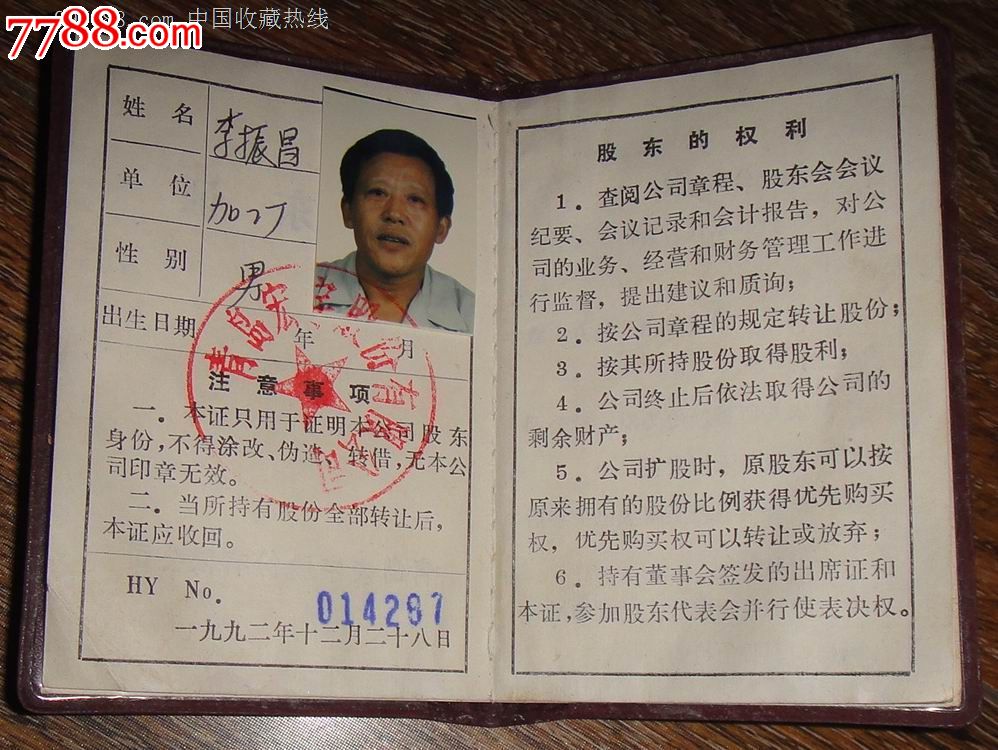 7788.com 中国收藏热线
7788.com
姓名 李振昌
单位
性别 男
出生日期 年 月
注意事项
一．本证只用于证明本公司股东
身份，不得涂改、伪造、转借，无本公
司印章无效。
二．当所持有股份全部转让后，
本证应收回。
HY No. 014287
一九九二年十二月二十八日
青岛 股份有限公司
股东的权利
1．查阅公司章程、股东会会议
纪要、会议记录和会计报告，对公
司的业务、经营和财务管理工作进
行监督，提出建议和质询；
2．按公司章程的规定转让股份；
3．按其所持股份取得股利；
4．公司终止后依法取得公司的
剩余财产；
5．公司扩股时，原股东可以按
原来拥有的股份比例获得优先购买
权，优先购买权可以转让或放弃；
6．持有董事会签发的出席证和
本证，参加股东代表会并行使表决权。